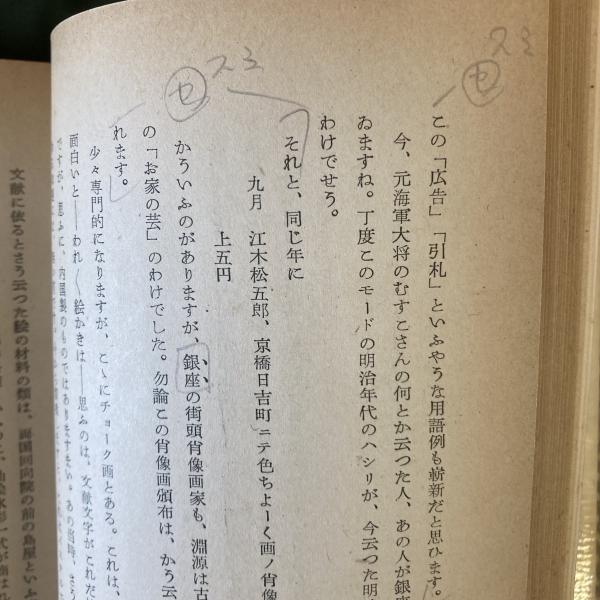 スミ
セ
スミ
セ
この「広告」「引札」といふやうな用語例も嶄新だと思ひます。
今、元海軍大将のむすこさんの何とか云つた人、あの人が銀座
ゐますね。丁度このモードの明治年代のハシリが、今云つた明
わけでせう。
それと、同じ年に
九月　江木松五郎、京橋日吉町ニテ色ちよーく画ノ肖像
上五円
かういふのがありますが、銀座の街頭肖像画家も、淵源は古
の「お家の芸」のわけでした。勿論この肖像画頒布は、かう云
れます。
少々専門的になりますが、こゝにチョーク画とある。これは、
面白いと――われ〱絵かきは――思ふのは、文献文字がこれだ
ですが、思ふに、内国製のものではありますまい。あの当時、さう
文献に依るとさう云つた絵の材料の類は、両国回向院の前の島屋といふ